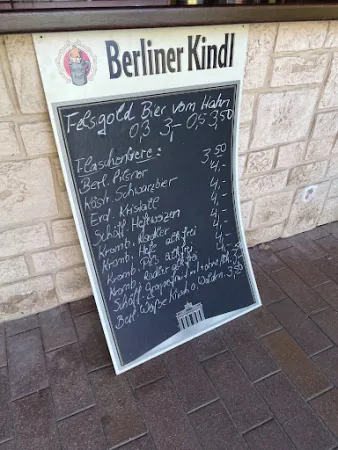 Berliner Kindl
Felsgold Bier vom Hahn
0,3 3,- 0,5 3,50
Flaschenbiere:
Berl. Pilsner 3,50
Köstr. Schwarzbier 4,-
Erd. Kristall 4,-
Schöff. Hefeweizen 4,-
Kromb. Radler 4,-
Kromb. Hefe alk.frei 4,-
Kromb. Pils alk.frei 4,-
Kromb. Radler alk.frei 4,-
Schöff. Grapefruit mit + ohne Alk. 3,-
Berl. Weiße Kirsch o. Waldm. 3,50